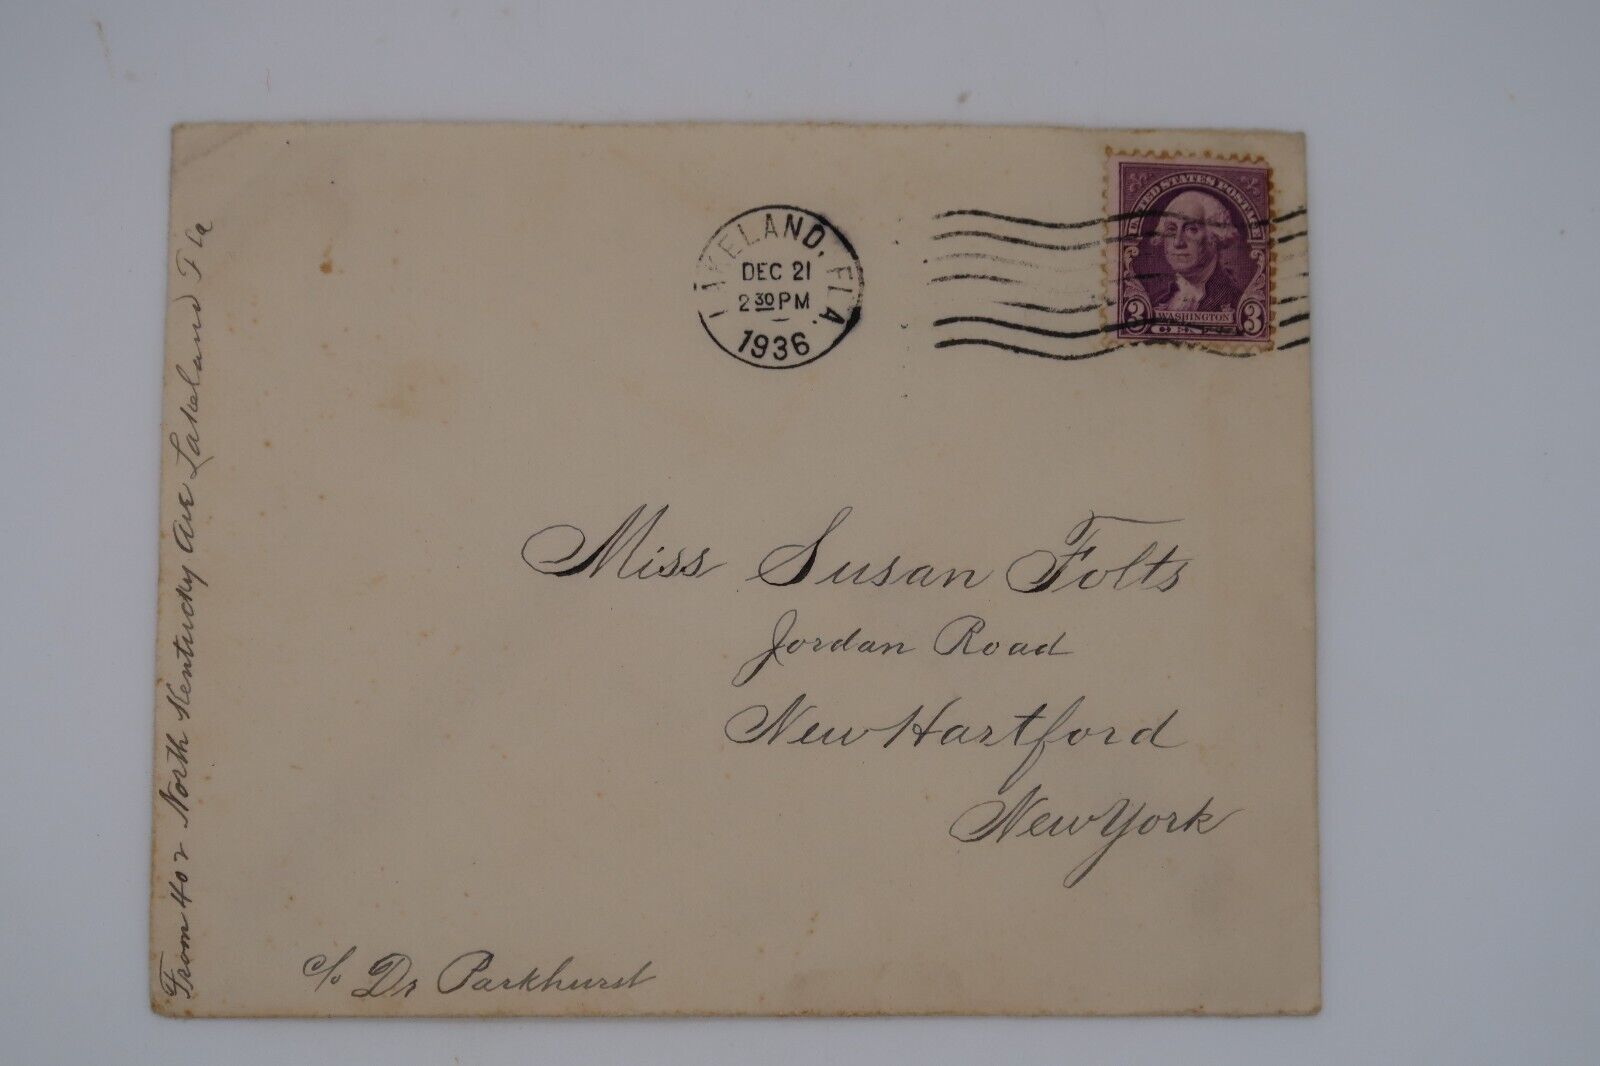 From 402 North Kentucky Ave Lakeland Fla
LAKELAND, FLA.
DEC 21
2 30 PM
1936
UNITED STATES POSTAGE
3 WASHINGTON 3
Miss Susan Folts
Jordan Road
New Hartford
New York
c/o Dr Parkhurst